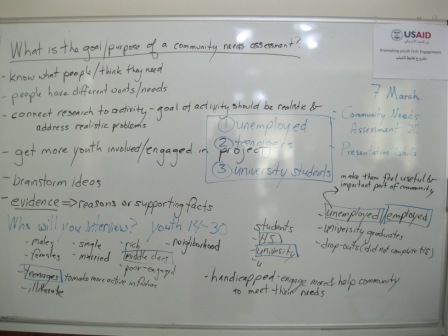 What is the goal/purpose of a community needs assessment?
USAID
Promoting Youth Civic Engagement
- know what people/think they need
- people have different wants/needs
7 March
- connect research to activity - goal of activity should be realistic &
address realistic problems
- Community Needs
Assessment
① unemployed
② teenagers
③ university students
- get more youth involved/engaged in project
- Presentation
- brainstorm ideas
make them feel useful &
important part of community
- evidence => reasons or supporting facts
Who will you interview? youth 14-30
- unemployed / employed
- university graduates
- drop-outs (did not complete HS)
- males
- females
- single
- married
- rich
- middle class
- poor - engaged
- neighborhood
students
HS
university
- teenagers to make more active in future
- illiterate
- handicapped - engage more & help community
to meet their needs